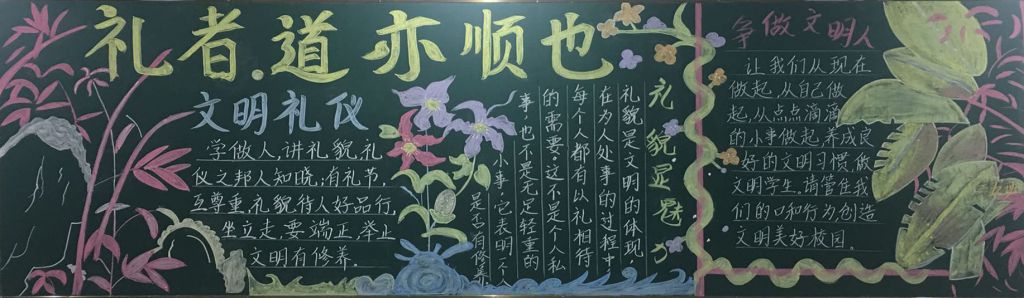 礼者.道亦顺也
文明礼仪
学做人,讲礼貌,礼
仪之邦人知晓,有礼节,
互尊重,礼貌待人好品行,
坐立走,要端正,举止
文明有修养.
礼貌显魅力
礼貌是文明的体现
在为人处事的过程中
每个人都有以礼相待
的需要。这不是个人私
事,也不是无足轻重的
小事,它表明一个人
是否有修养
争做文明人
让我们从现在
做起,从自己做
起,从点点滴滴
的小事做起,养成良
好的文明习惯,做
文明学生,请管住我
们的口和行为创造
文明美好校园.